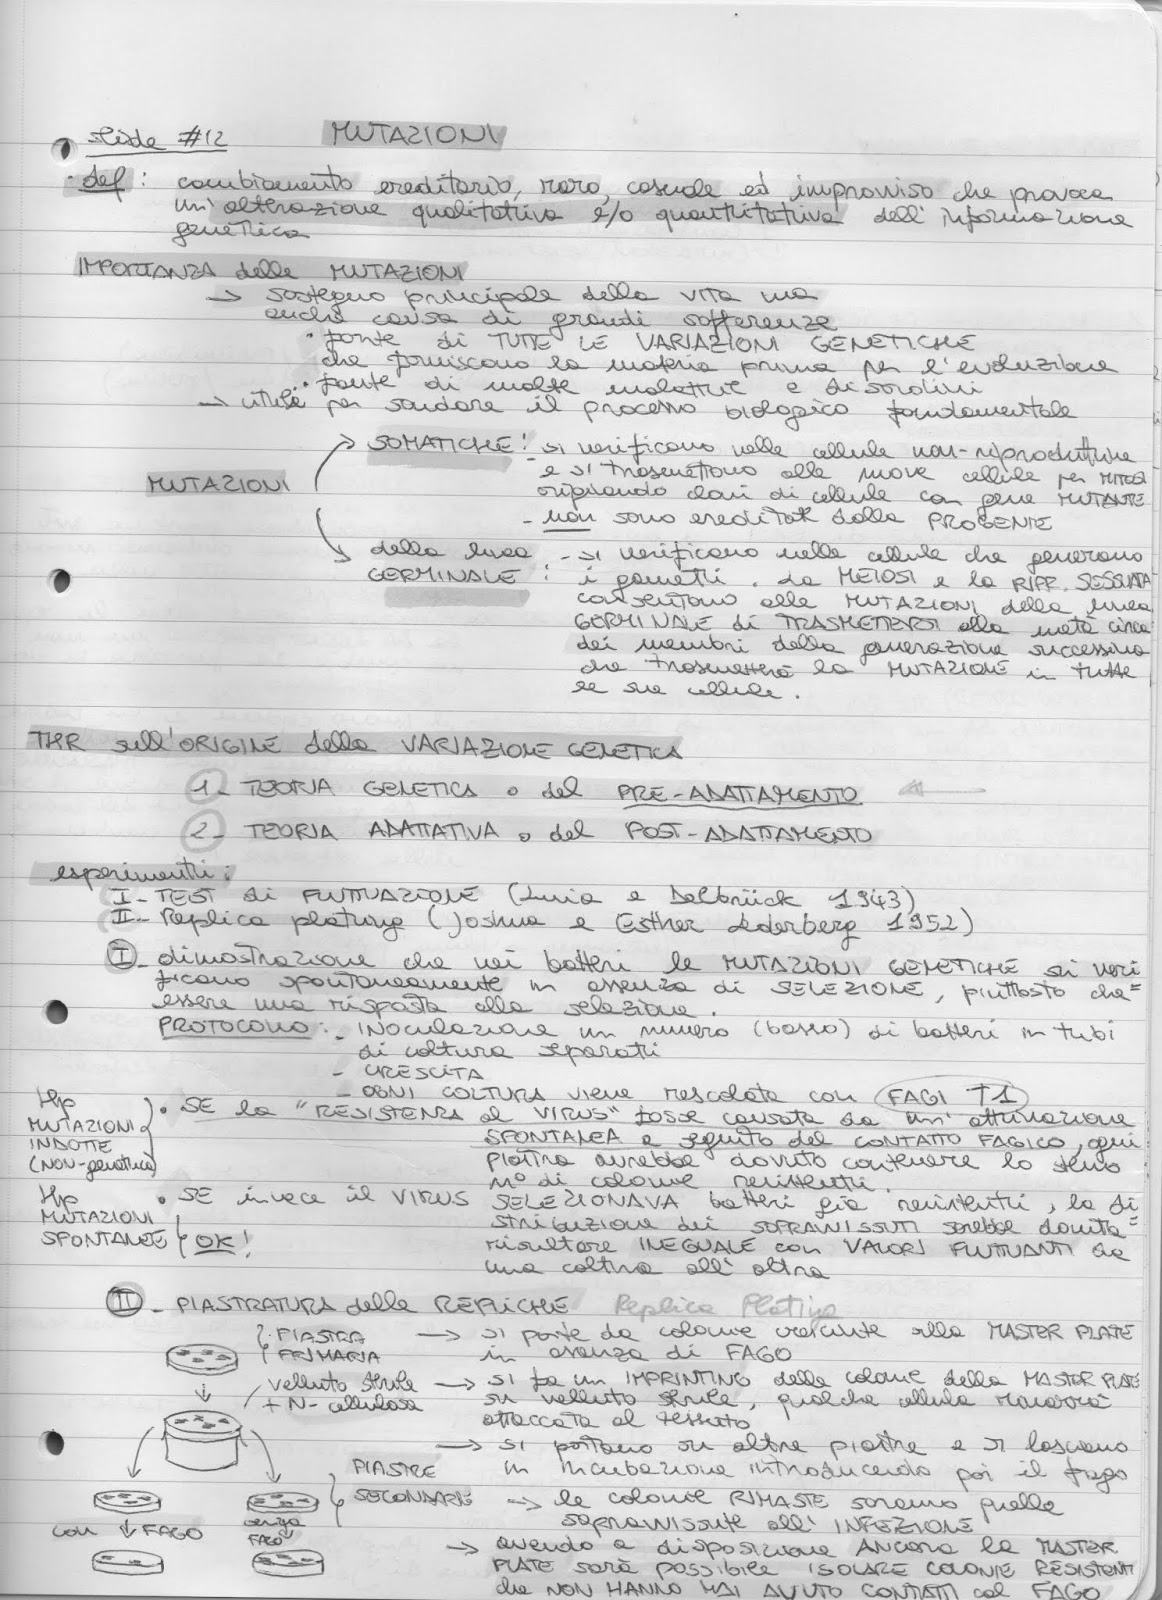 slide #12 MUTAZIONI
· def: cambiamento ereditario, raro, casuale ed improvviso che provoca
un'alterazione qualitativa e/o quantitativa dell'informazione
genetica
IMPORTANZA delle MUTAZIONI
→ sostegno principale della vita ma
anche causa di grandi sofferenze
· fonte di TUTTE LE VARIAZIONI GENETICHE
che forniscono la materia prima per l'evoluzione
· fonte di molte malattie e disordini
→ utili per sondare il processo biologico fondamentale
MUTAZIONI
SOMATICHE: - si verificano nelle cellule non-riproduttive
e si trasmettono alle nuove cellule per MITOSI
originando cloni di cellule con gene MUTANTE
- non sono ereditate dalla PROGENIE
della linea GERMINALE: - si verificano nelle cellule che generano
i gameti. La MEIOSI e la RIPR. SESSUATA
consentono alle MUTAZIONI della linea
GERMINALE di TRASMETTERSI alla metà circa
dei membri della generazione successiva
che trasmetterà la MUTAZIONE in tutte
le sue cellule.
THR sull'ORIGINE della VARIAZIONE GENETICA
1- TEORIA GENETICA o del PRE-ADATTAMENTO ←
2- TEORIA ADATTATIVA o del POST-ADATTAMENTO
esperimenti:
I- TEST di FLUTTUAZIONE (Luria e Delbrück 1943)
II- Replica plating (Joshua e Esther Lederberg 1952)
I- dimostrazione che nei batteri le MUTAZIONI GENETICHE si veri=
ficano spontaneamente in assenza di SELEZIONE, piuttosto che
essere una risposta alla selezione.
PROTOCOLLO: - INOCULAZIONE un numero (basso) di batteri in tubi
di coltura separati
- CRESCITA
- OGNI COLTURA viene mescolata con FAGI T1
Hp MUTAZIONI INDOTTE (NON-genetica)
· SE la "RESISTENZA al VIRUS" fosse causata da un'attivazione
SPONTANEA a seguito del CONTATTO FAGICO, ogni
piastra avrebbe dovuto contenere lo stesso
n° di colonie resistenti.
Hp MUTAZIONI SPONTANEE OK!
· SE invece il VIRUS SELEZIONAVA batteri già resistenti, la di=
stribuzione dei SOPRAVVISSUTI sarebbe dovuta
risultare INEGUALE con VALORI FLUTTUANTI da
una coltura all'altra
II- PIASTRATURA delle REPLICHE Replica Plating
PIASTRA PRIMARIA → si parte da colonie cresciute sulla MASTER PLATE
in assenza di FAGO
velluto sterile + N-cellulosa → si fa un IMPRINTING delle colonie della MASTER PLATE
su velluto sterile, qualche cellula rimarrà
attaccata al tessuto
→ si portano su altre piastre e si lasciano
in incubazione introducendo poi il fago
PIASTRE SECONDARIE
→ le colonie RIMASTE saranno quelle
sopravvissute all'INFEZIONE
con FAGO
senza FAGO
→ avendo a disposizione ANCORA la MASTER
PLATE sarà possibile ISOLARE COLONIE RESISTENTI
che NON HANNO MAI AVUTO CONTATTI col FAGO